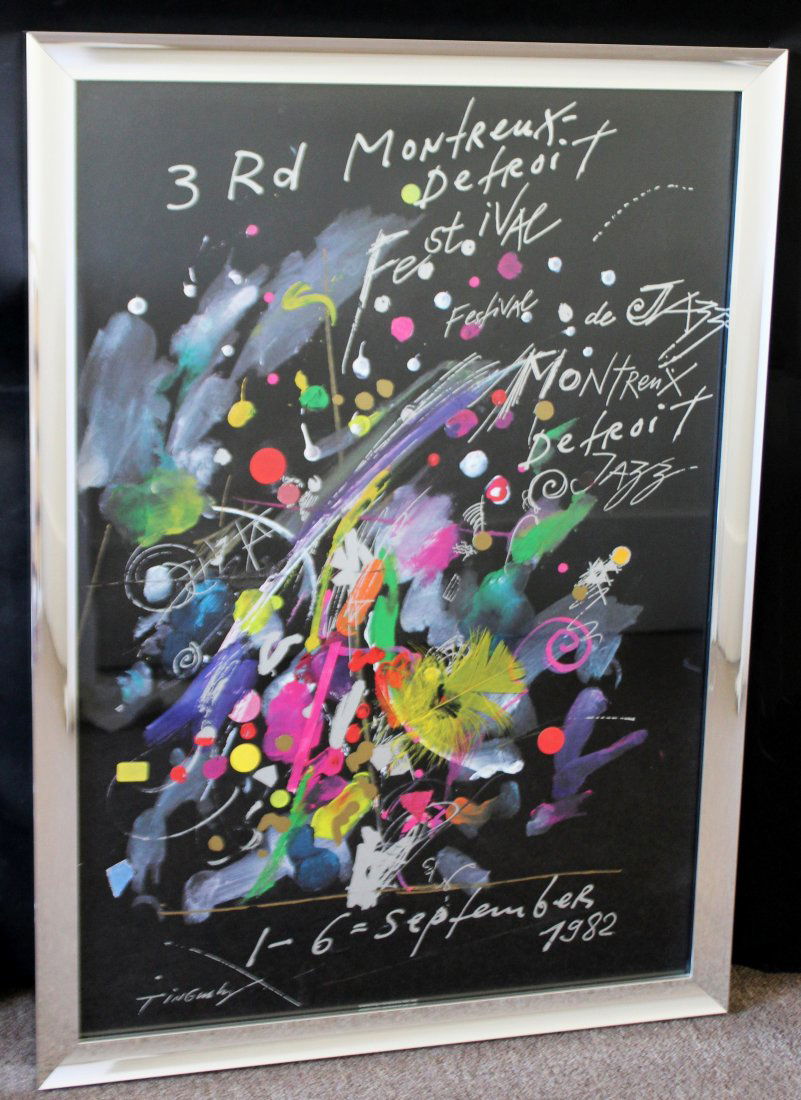 3 Rd Montreux-
Detroit
Festival
Festival de Jazz
Montreux
Detroit
Jazz
1-6 = September
1982
Tinguely